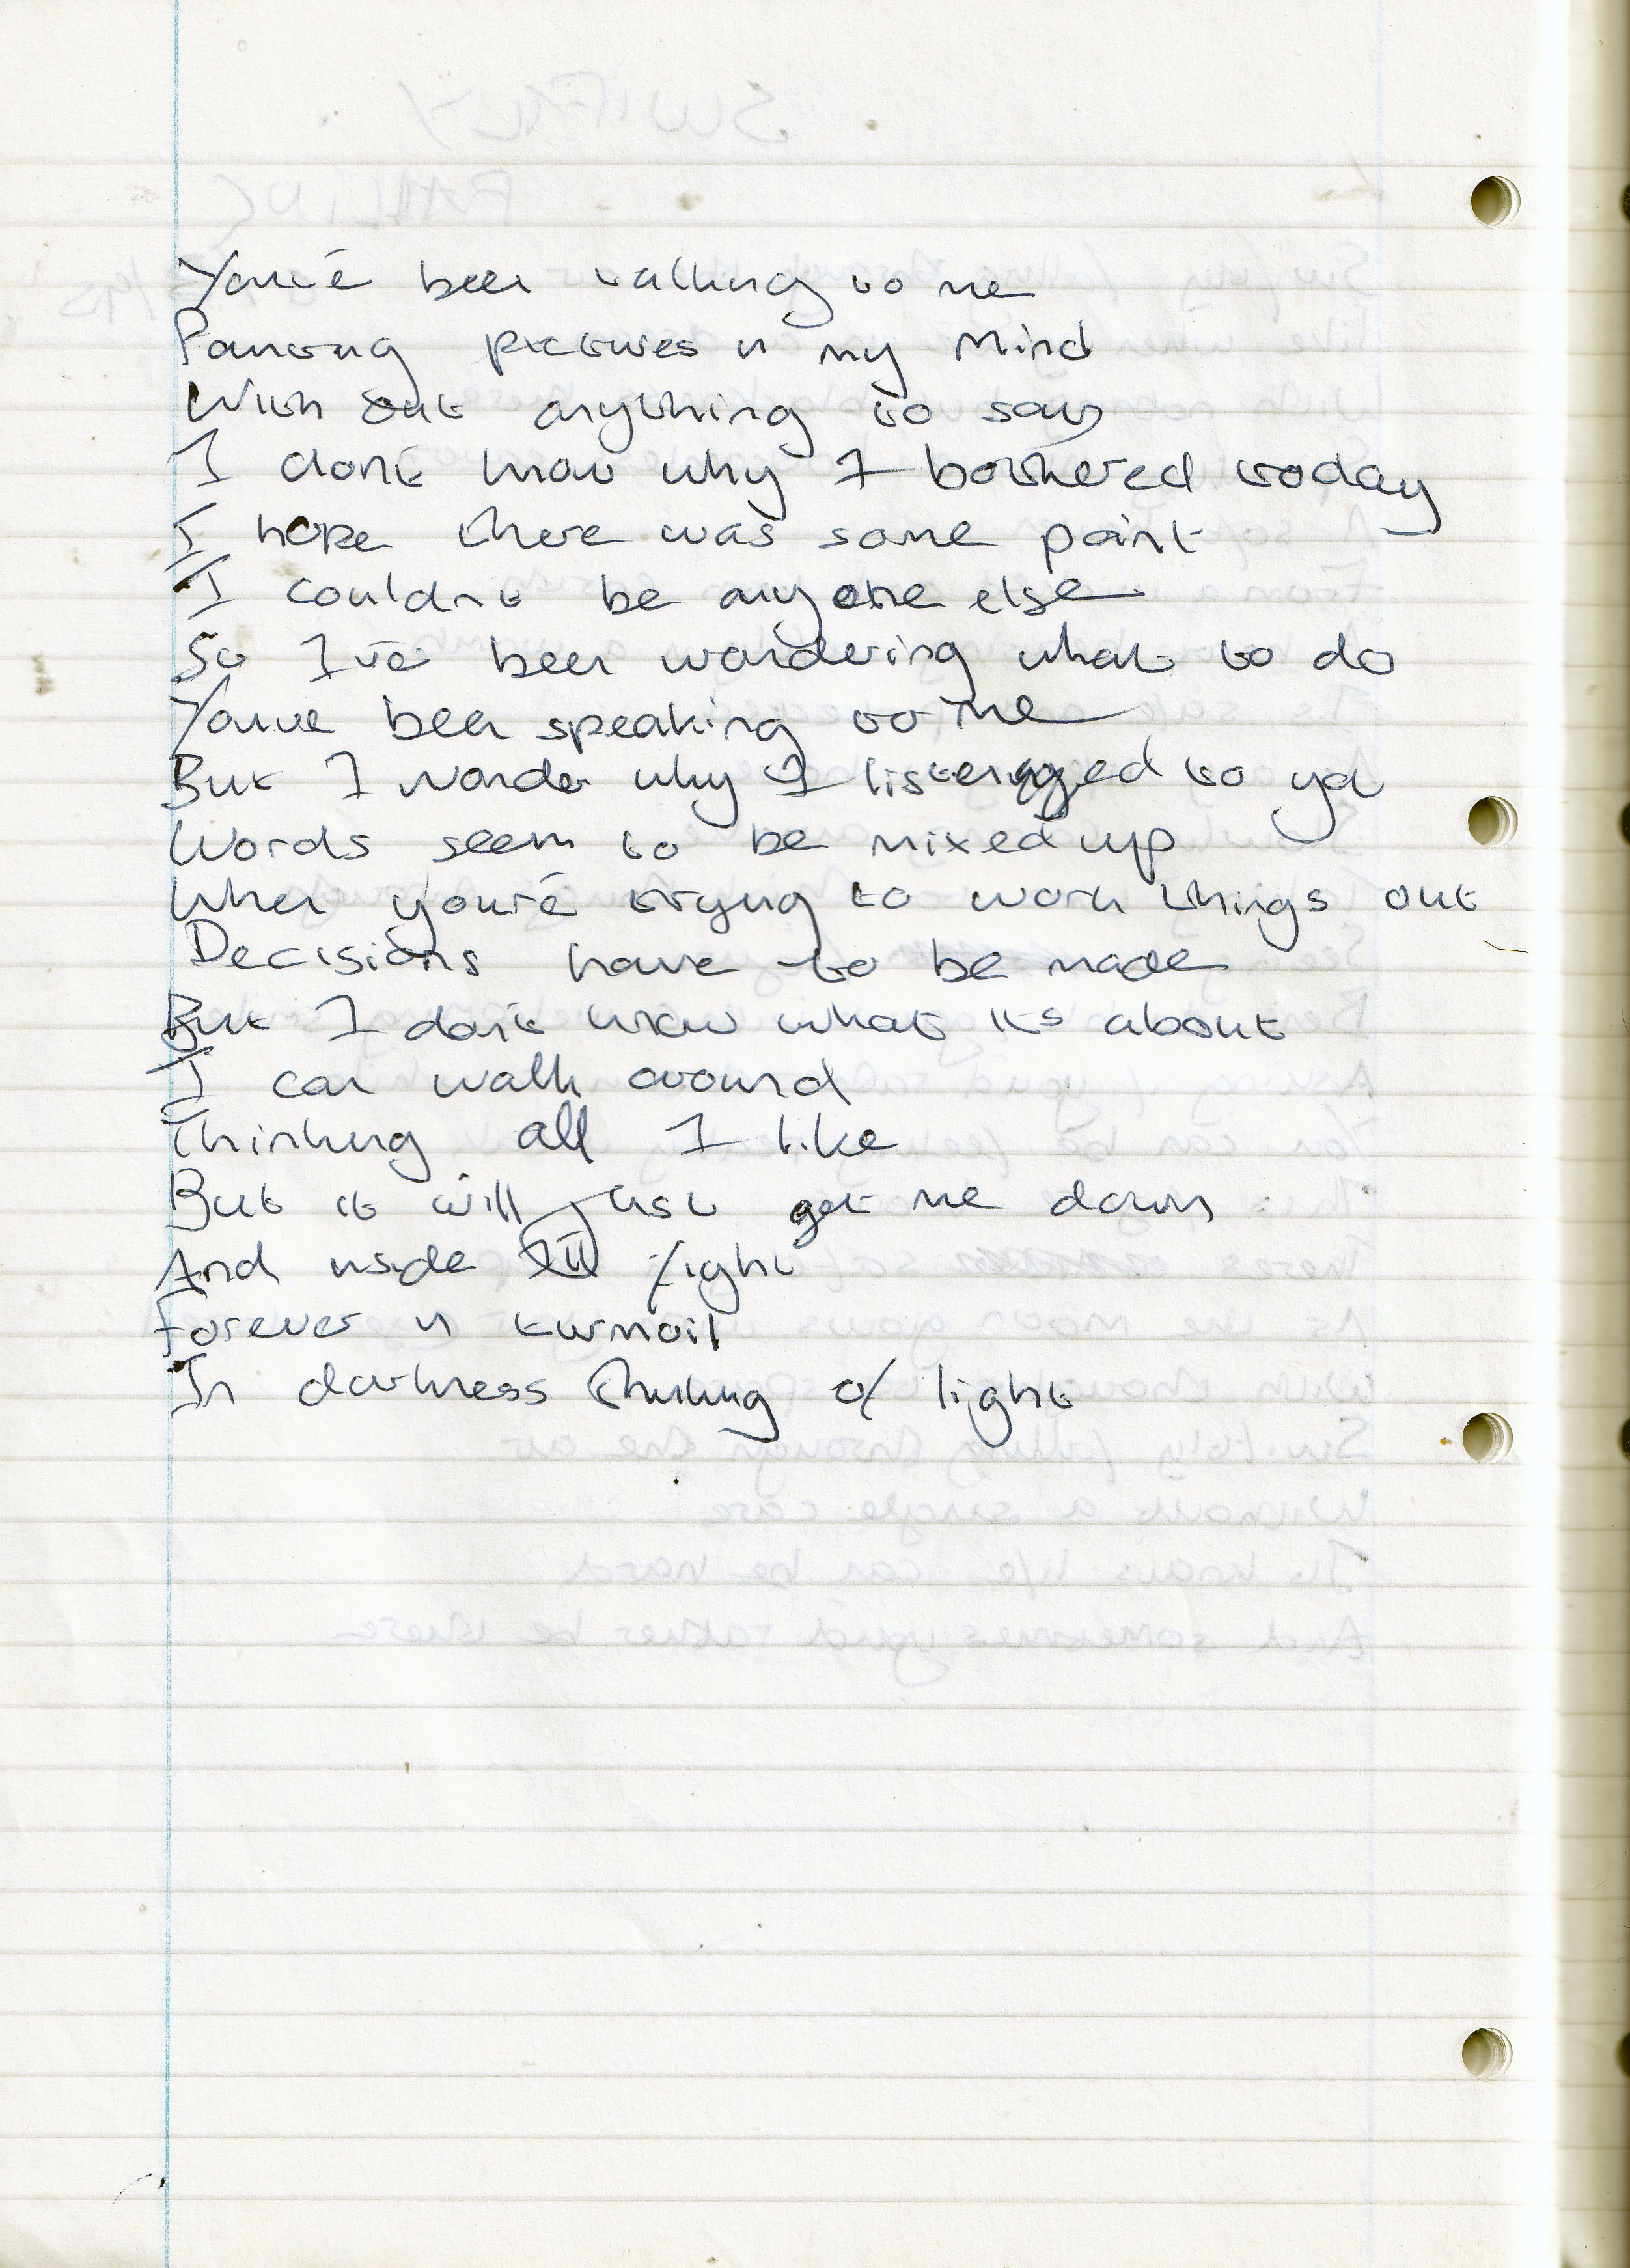 You've been talking to me
Painting pictures in my mind
With out anything to say
I don't know why I bothered today
I hope there was some point
I couldn't be anyone else
So I've been wondering what to do
You've been speaking to me
But I wonder why I listened to ya
Words seem to be mixed up
When you're trying to work things out
Decisions have to be made
But I don't know what its about
I can walk around
Thinking all I like
But it will just get me down
And inside I'll fight
Forever in turmoil
In darkness thinking of light